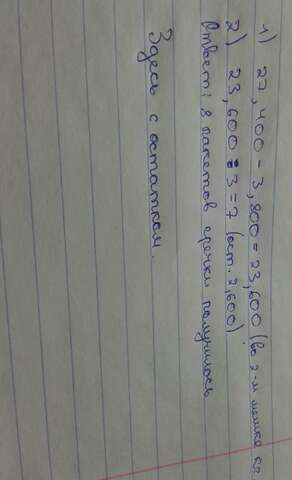 1) 27,400 - 3,800 = 23,600 (во 2-м мешке кг.
2) 23,600 : 3 = 7 (ост. 2,600)
Ответ: 8 пакетов гречки получилось
Здесь с остатком.